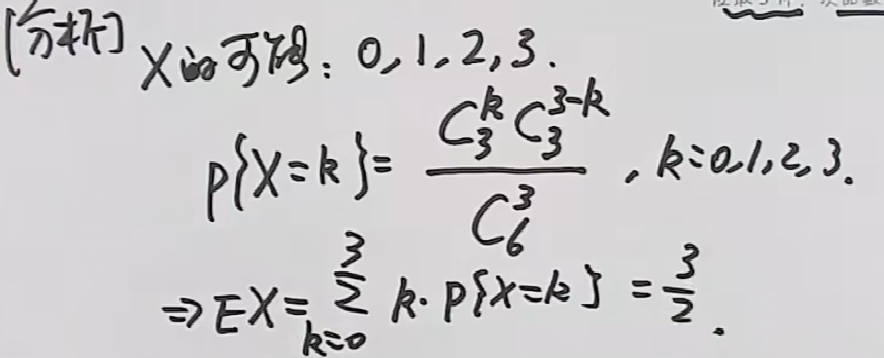 [分析] X的可能: 0, 1, 2, 3.
P{X=k}= \frac{C_3^k C_3^{3-k}}{C_6^3}, k=0,1,2,3.
⇒EX=\sum_{k=0}^{3} k·P{X=k}=\frac{3}{2}.